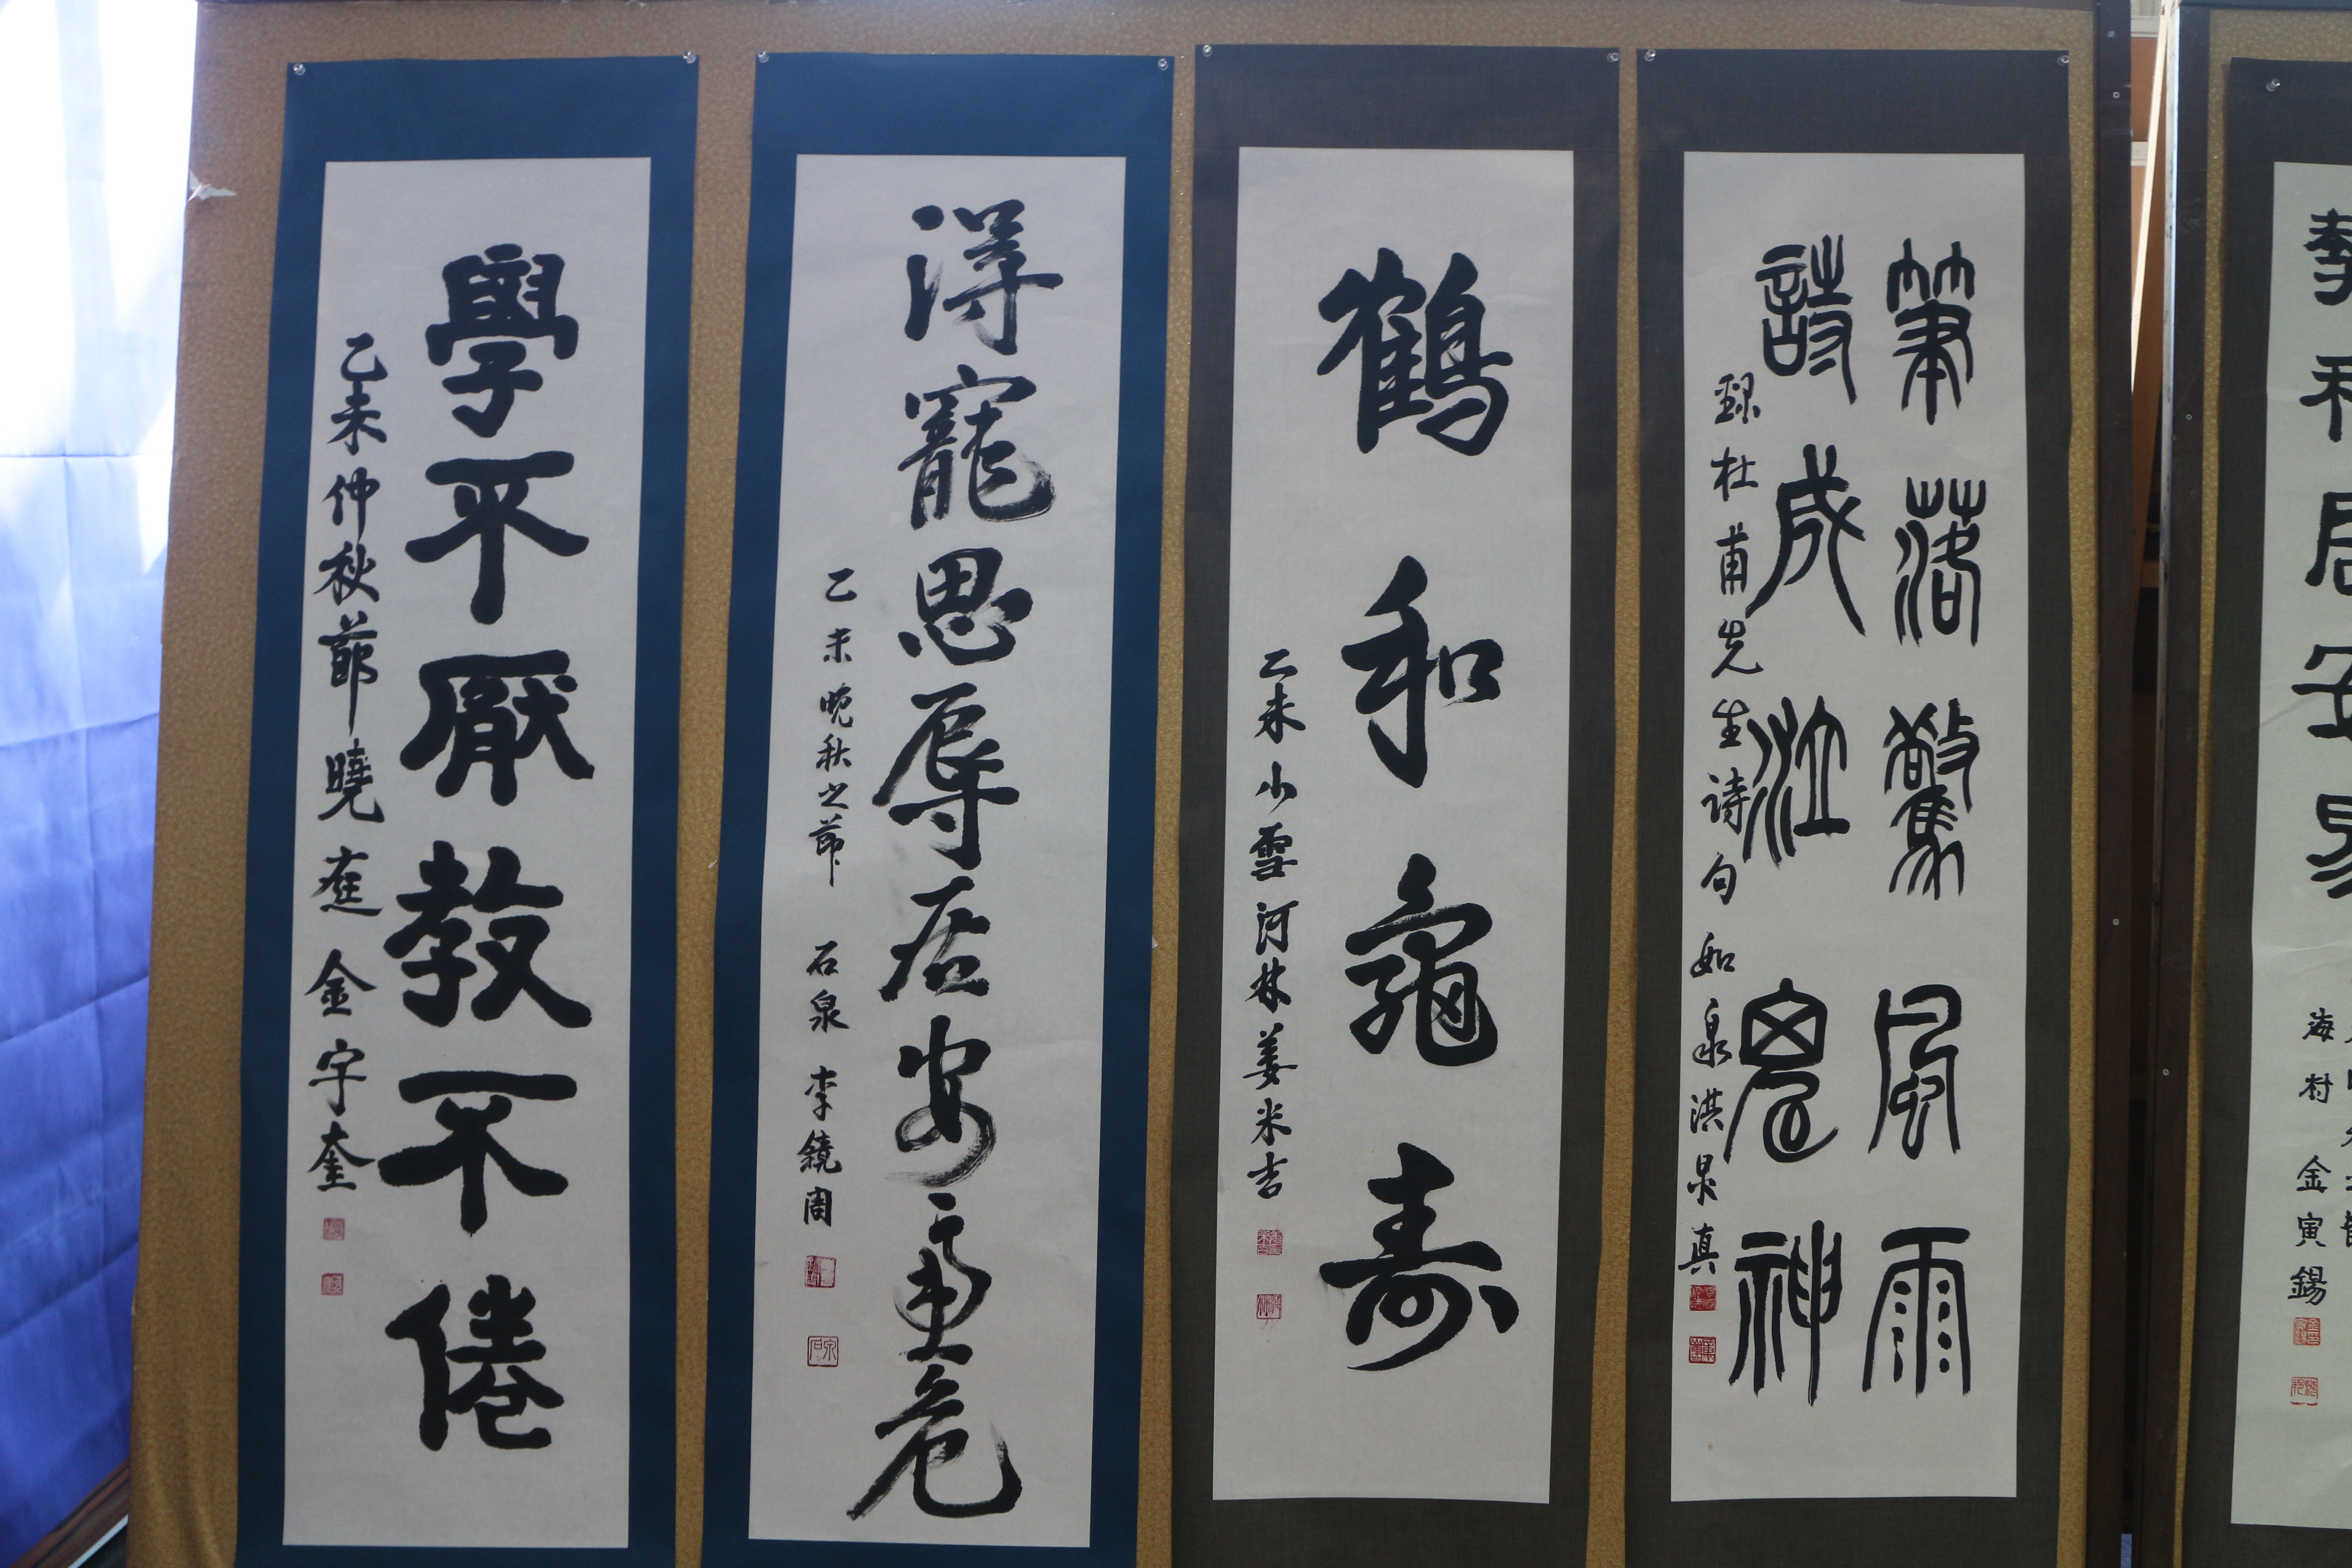 學不厭教不倦
乙未仲秋節 曉庭 金宇奎
得寵思辱居安慮危
乙未晚秋之節 石泉 李鏡周
鶴和龜寿
乙未小雪 河林 姜米吉
筆落驚風雨
詩成泣鬼神
錄杜甫先生诗句 如泉 洪 真
居安易
海村 金寅錫